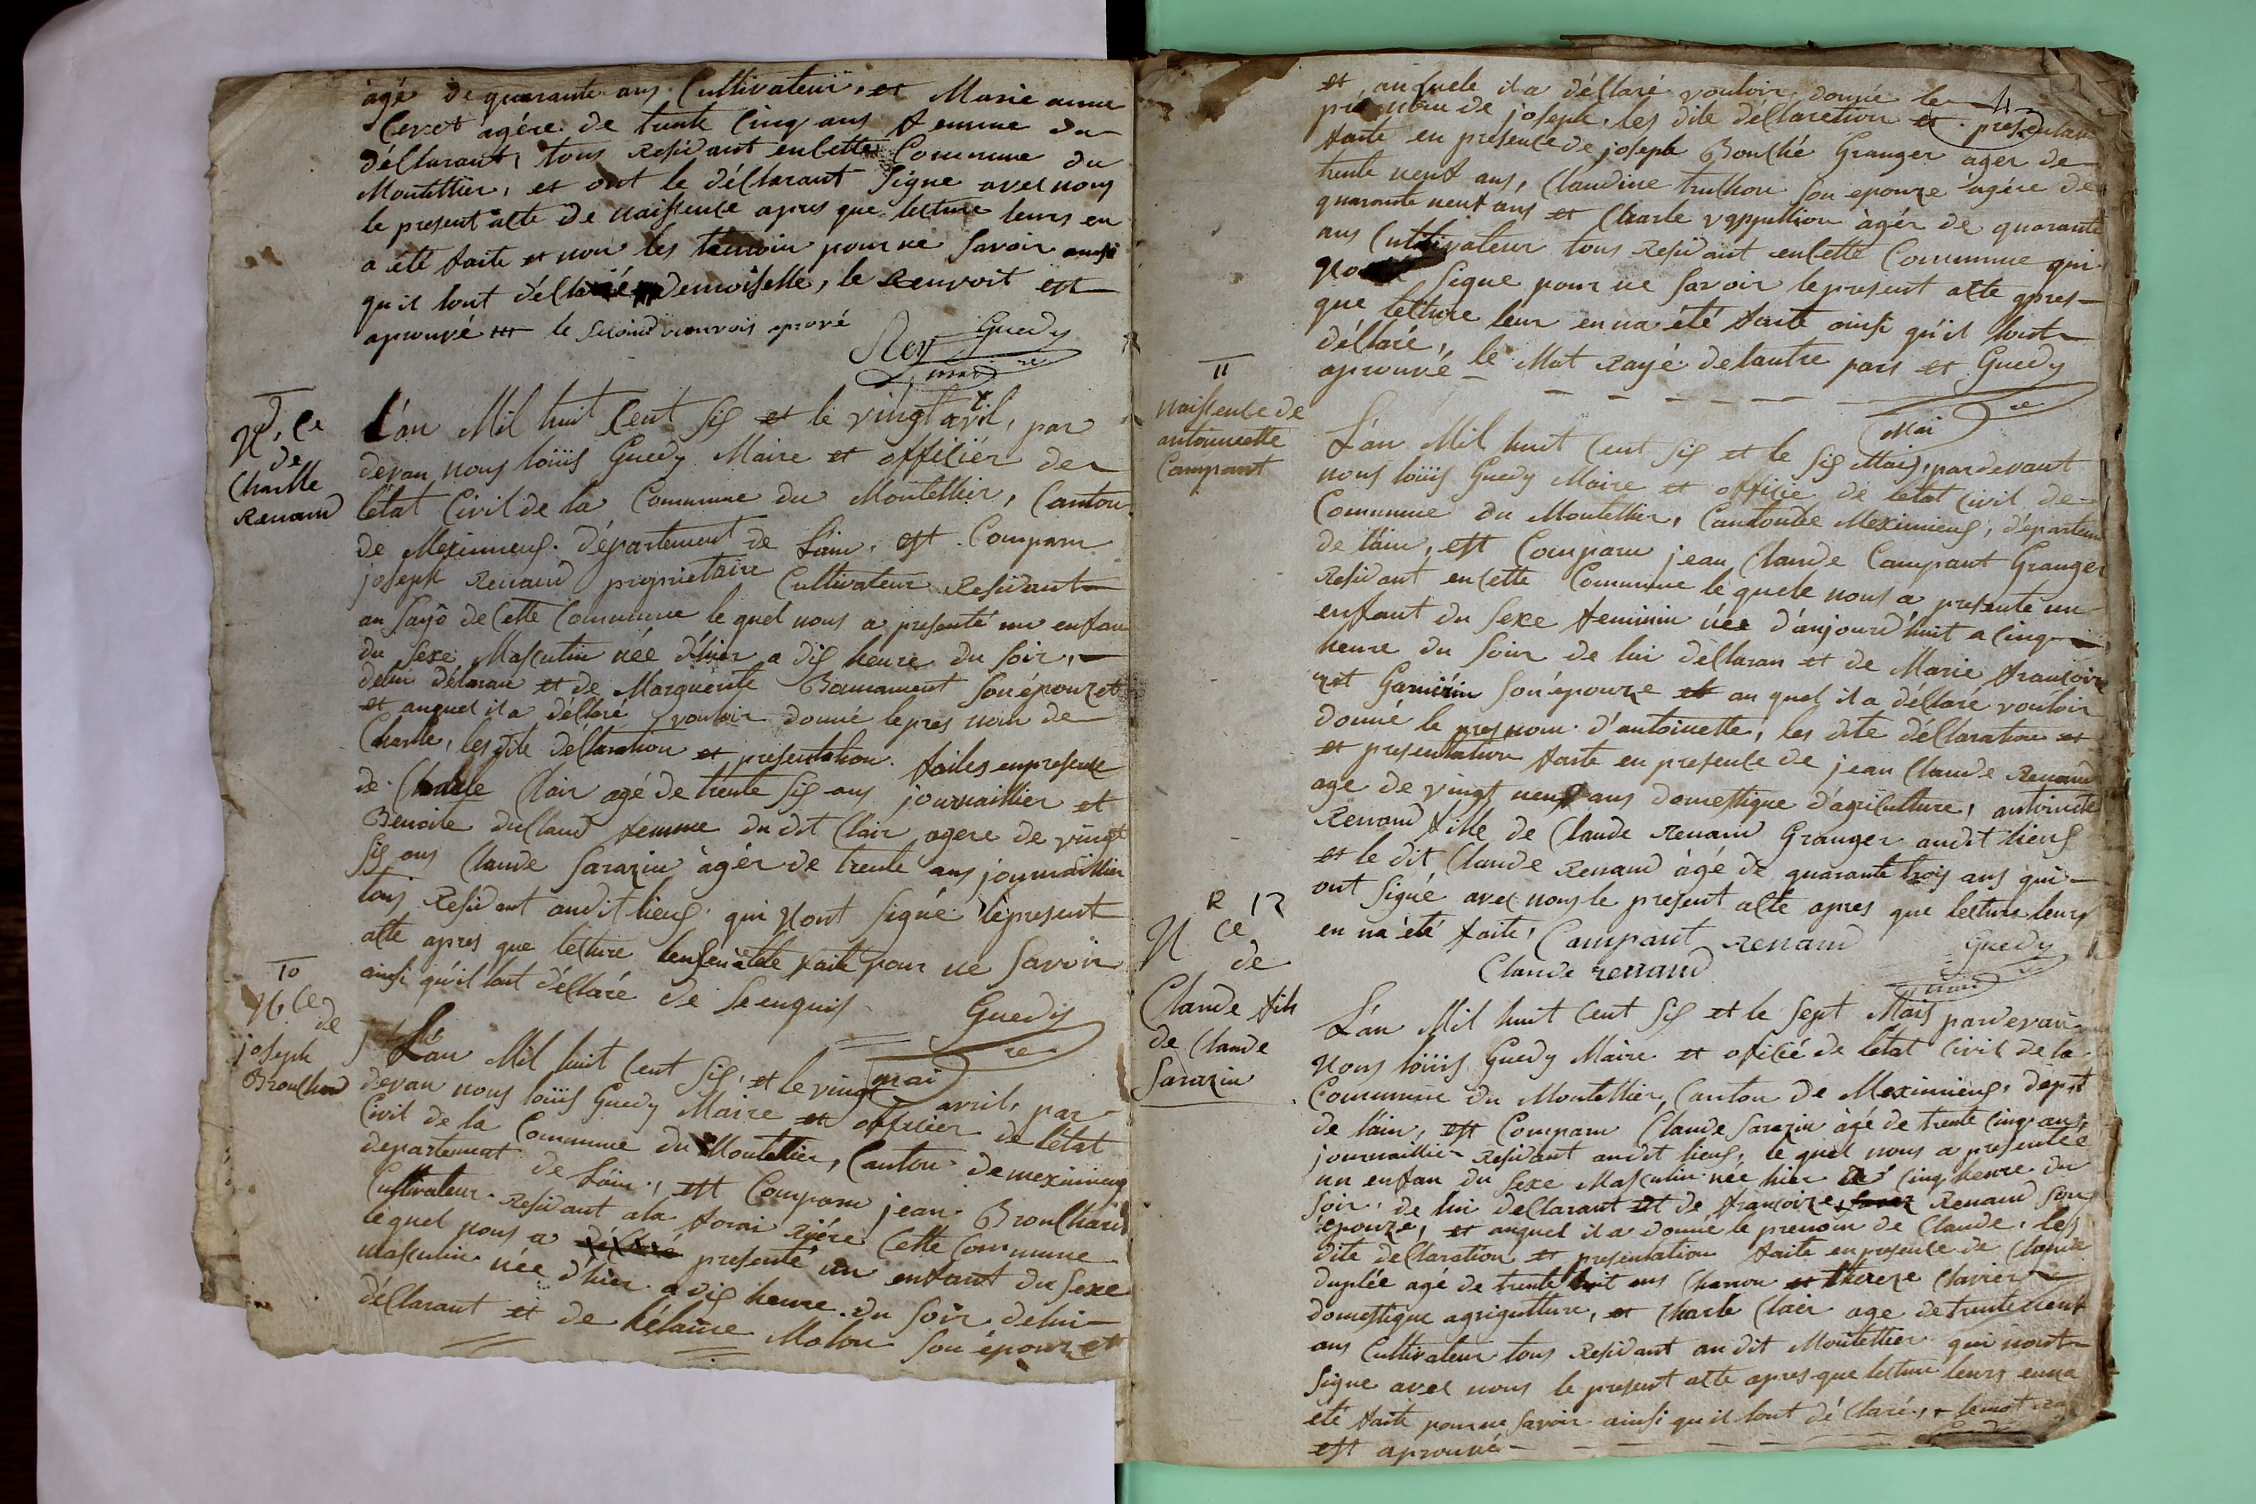 âgé de quarante ans Cultivateur, et Marie anne
agére de trente Cinq ans femme du
déclarant, tous Residant en cette Commune du
Montellier, et ont le déclarant Signe avec nous
le present acte de naissence apres que lecture leurs en
a été faite et non les temoin pour ne Savoir ainsi
qu'il lont déclaré demoiselle, le Renvoit est
aprouvé le Second renvois aprové
Rey Guedy
maire
9
N.ce
de
Charlle
Renaud
L'an Mil huit Cent Six et le vingt avril, par
devan nous loüis Guedy Maire et officiér de
létat Civil de la Commune du Montellier, Canton
de Meximieux. département de Lain, est Comparu
joseph Renaud proprietaire Cultivateur Residant
au de Cette Commune le quel nous a presenté un enfan
du Sexe Masculin née d'hier a dix heure du Soir,
delui déclaran et de Marguerite Son épouze
et auquel il a déclaré vouloir donné le pres nom de
Charle, les dite déclaration et presentation faites en presence
de Charle Clair agé de trente Six ans journaillier et
Benoite femme du dit Clair agere de vingt
Six ans Claude Sarazin àgér de trente ans journaillier
tous Residant audit lieux qui Nont Signé le present
acte apres que lecture faite pour ne Savoir
ainsi qu'il lont déclaré de Se enquis
Guedy
maire
10
N.ce
de
joseph
Brouchard
L'an Mil huit Cent Six, et le vingt avril, par
devan nous loüis Guedy Maire et officier de létat
Civil de la Commune du Montellier, Canton de meximieux
departemat de Lain, est Comparu jean Brouchard
Cultivateur Residant ala forai Riére Cette Commune
lequel nous a déclaré presenté un enfant du Sexe
masculin née d'hier a dix heure du Soir delui
déclarant et de hélaine Molon Son épouze et
4
et auquele il a déclaré vouloir donné le
pré nom de joseph, les dite déclaretion et presentation
faite en presence de joseph Bouché Granger ager de
trente neuf ans, Claudine truchon Son epouze agére de
quarante neuf ans et Charle vappillion àgér de quarante
ans Cultivateur tous Residant en cette Commune qui
Nont Signe pour ne Savoir le present acte apres
que lecture leur enna été faite ainsi qu'il lont
déclaré, le Mot Rayé delautre pars et
aprouvé Guedy
maire
11
naissence de
antoinette
Campant
L'an Mil huit Cent Six et le Six Mais, pardevant
nous loüis Guedy Maire et officie de létat Civil de
Commune du Montellier, Canton de Meximieux, département
de lain, est Comparu jean Claude Campant Granger
Residant en cette Commune le quele nous a presente un
enfant du Sexe feminin née d'aujourd'huit a Cinq
heure du Soir de lui déclaran et de Marie francoize
Garnérin Son épouze et au quel il a déclaré vouloir
donné le pres nom d'antoinette, les dite déclaration
et presentation faite en presence de jean Claude Renaud
age de vingt neuf ans domestique d'agriculture, antoinette
Renaud fille de Claude Renaud Granger audit lieux
et le dit Claude Renaud àgé de quarante trois ans qui
ont Signé avec nous le present acte apres que lecture leurs
en na été faite, Campant Renaud Guedy
Claude renaud maire
12
N ce
de
Claude fils
de Claude
Sarazin
L'an Mil huit Cent Six et le Sept Mais pardevan
Nous loüis Guedy Maire et oficié de létat Civil de la
Commune du Montellier, Canton de Meximieux, dept
de lain, est Comparu Claude Sarazin àgé de trente Cinq ans,
journaillie Residant audit lieux, le quel nous a presentée
un enfan du Sexe Masculin née hier a Cinq heure du
Soir, de lui declarant et de francoize Renaud Son
epouze, et auquel il a donné le prenom de Claude, les
dite declaration et presentation faite en presence de Claude
duplée agé de trente huit ans Charron et thereze Clavier
domestique agriculture, et Charle Clair age de trente neuf
ans Cultivateur tous Residant audit Montellier qui nont
Signe avec nous le present acte apres que lecture leurs enna
été faite pour ne Savoir ainsi qu'il lont déclaré, le mot
est aprouvé